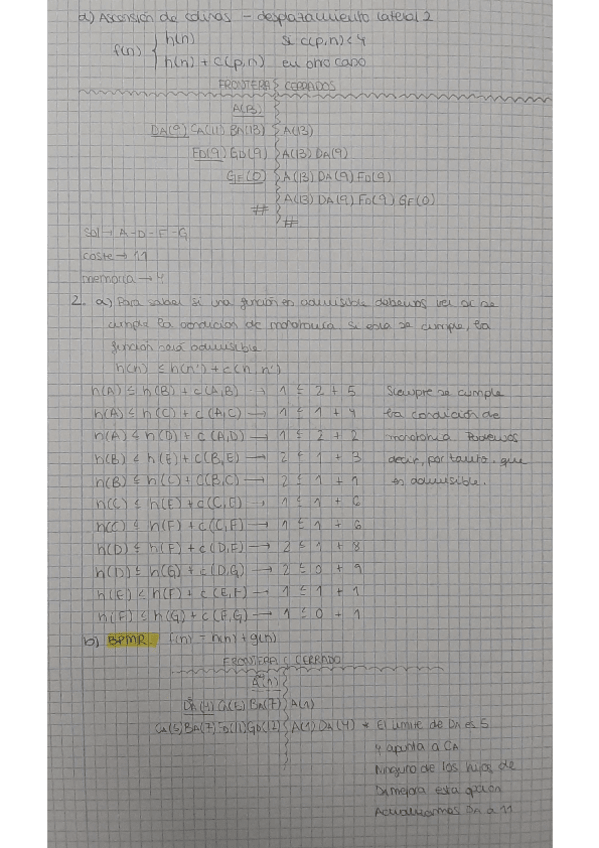 d) Ascensión de colinas - desplazamiento lateral 2
f(n) { h(n) si c(p,n)<4
h(n) + c(p,n) en otro caso
FRONTERA CERRADOS
A(13)
DA(9) CA(11) BA(13) A(13)
FD(9) GD(9) A(13) DA(9)
GF(0) A(13) DA(9) FD(9)
# A(13) DA(9) FD(9) GF(0)
#
sol → A-D-F-G
coste → 11
memoria → 4
2. a) Para saber si una función es admisible debemos ver si se
cumple la condición de monotonía. Si esta se cumple, la
función será admisible
h(n) ≤ h(n') + c(n, n')
h(A) ≤ h(B) + c(A,B) → 1 ≤ 2 + 5 Siempre se cumple
h(A) ≤ h(C) + c(A,C) → 1 ≤ 1 + 4 la condición de
h(A) ≤ h(D) + c(A,D) → 1 ≤ 2 + 2 monotonía. Podemos
h(B) ≤ h(E) + c(B,E) → 2 ≤ 1 + 3 decir, por tanto, que
h(B) ≤ h(C) + c(B,C) → 2 ≤ 1 + 1 es admisible.
h(C) ≤ h(E) + c(C,E) → 1 ≤ 1 + 6
h(C) ≤ h(F) + c(C,F) → 1 ≤ 1 + 6
h(D) ≤ h(F) + c(D,F) → 2 ≤ 1 + 8
h(D) ≤ h(G) + c(D,G) → 2 ≤ 0 + 9
h(E) ≤ h(F) + c(E,F) → 1 ≤ 1 + 1
h(F) ≤ h(G) + c(F,G) → 1 ≤ 0 + 1
b) BPMR. f(n) = h(n) + g(n)
FRONTERA CERRADO
A(1)
DA(4) CA(5) BA(7) A(1)
CA(5) BA(7) FD(11) GD(12) A(1) DA(4) * El límite de DA es 5
y apunta a CA
Ninguno de los hijos de
DA mejora esta opción
Actualizamos DA a 11